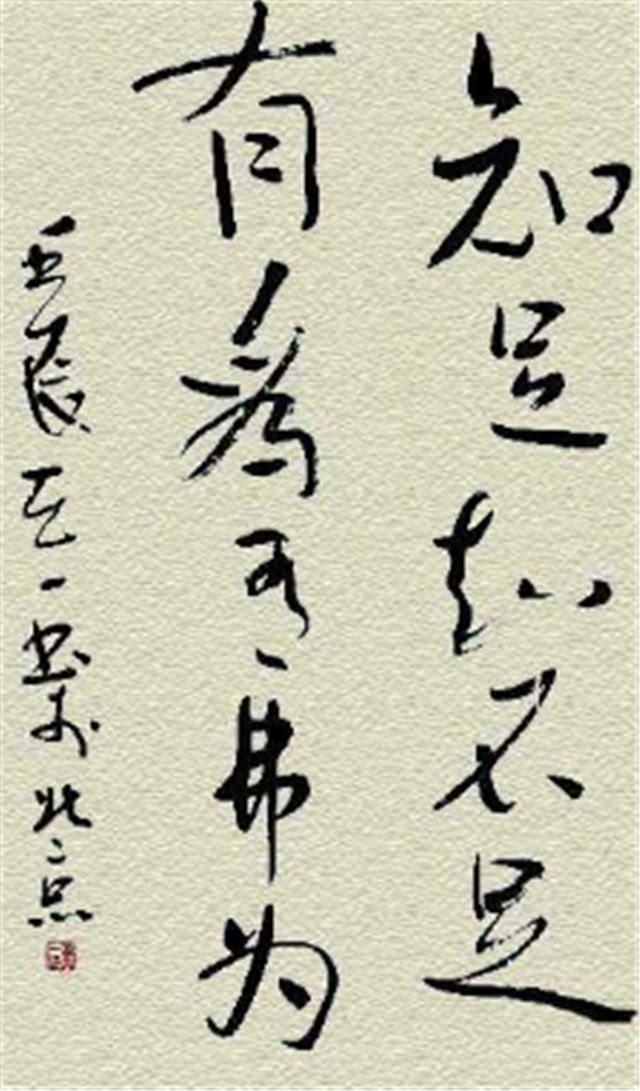 知足知不足
有為有弗为
壬辰一书於北京